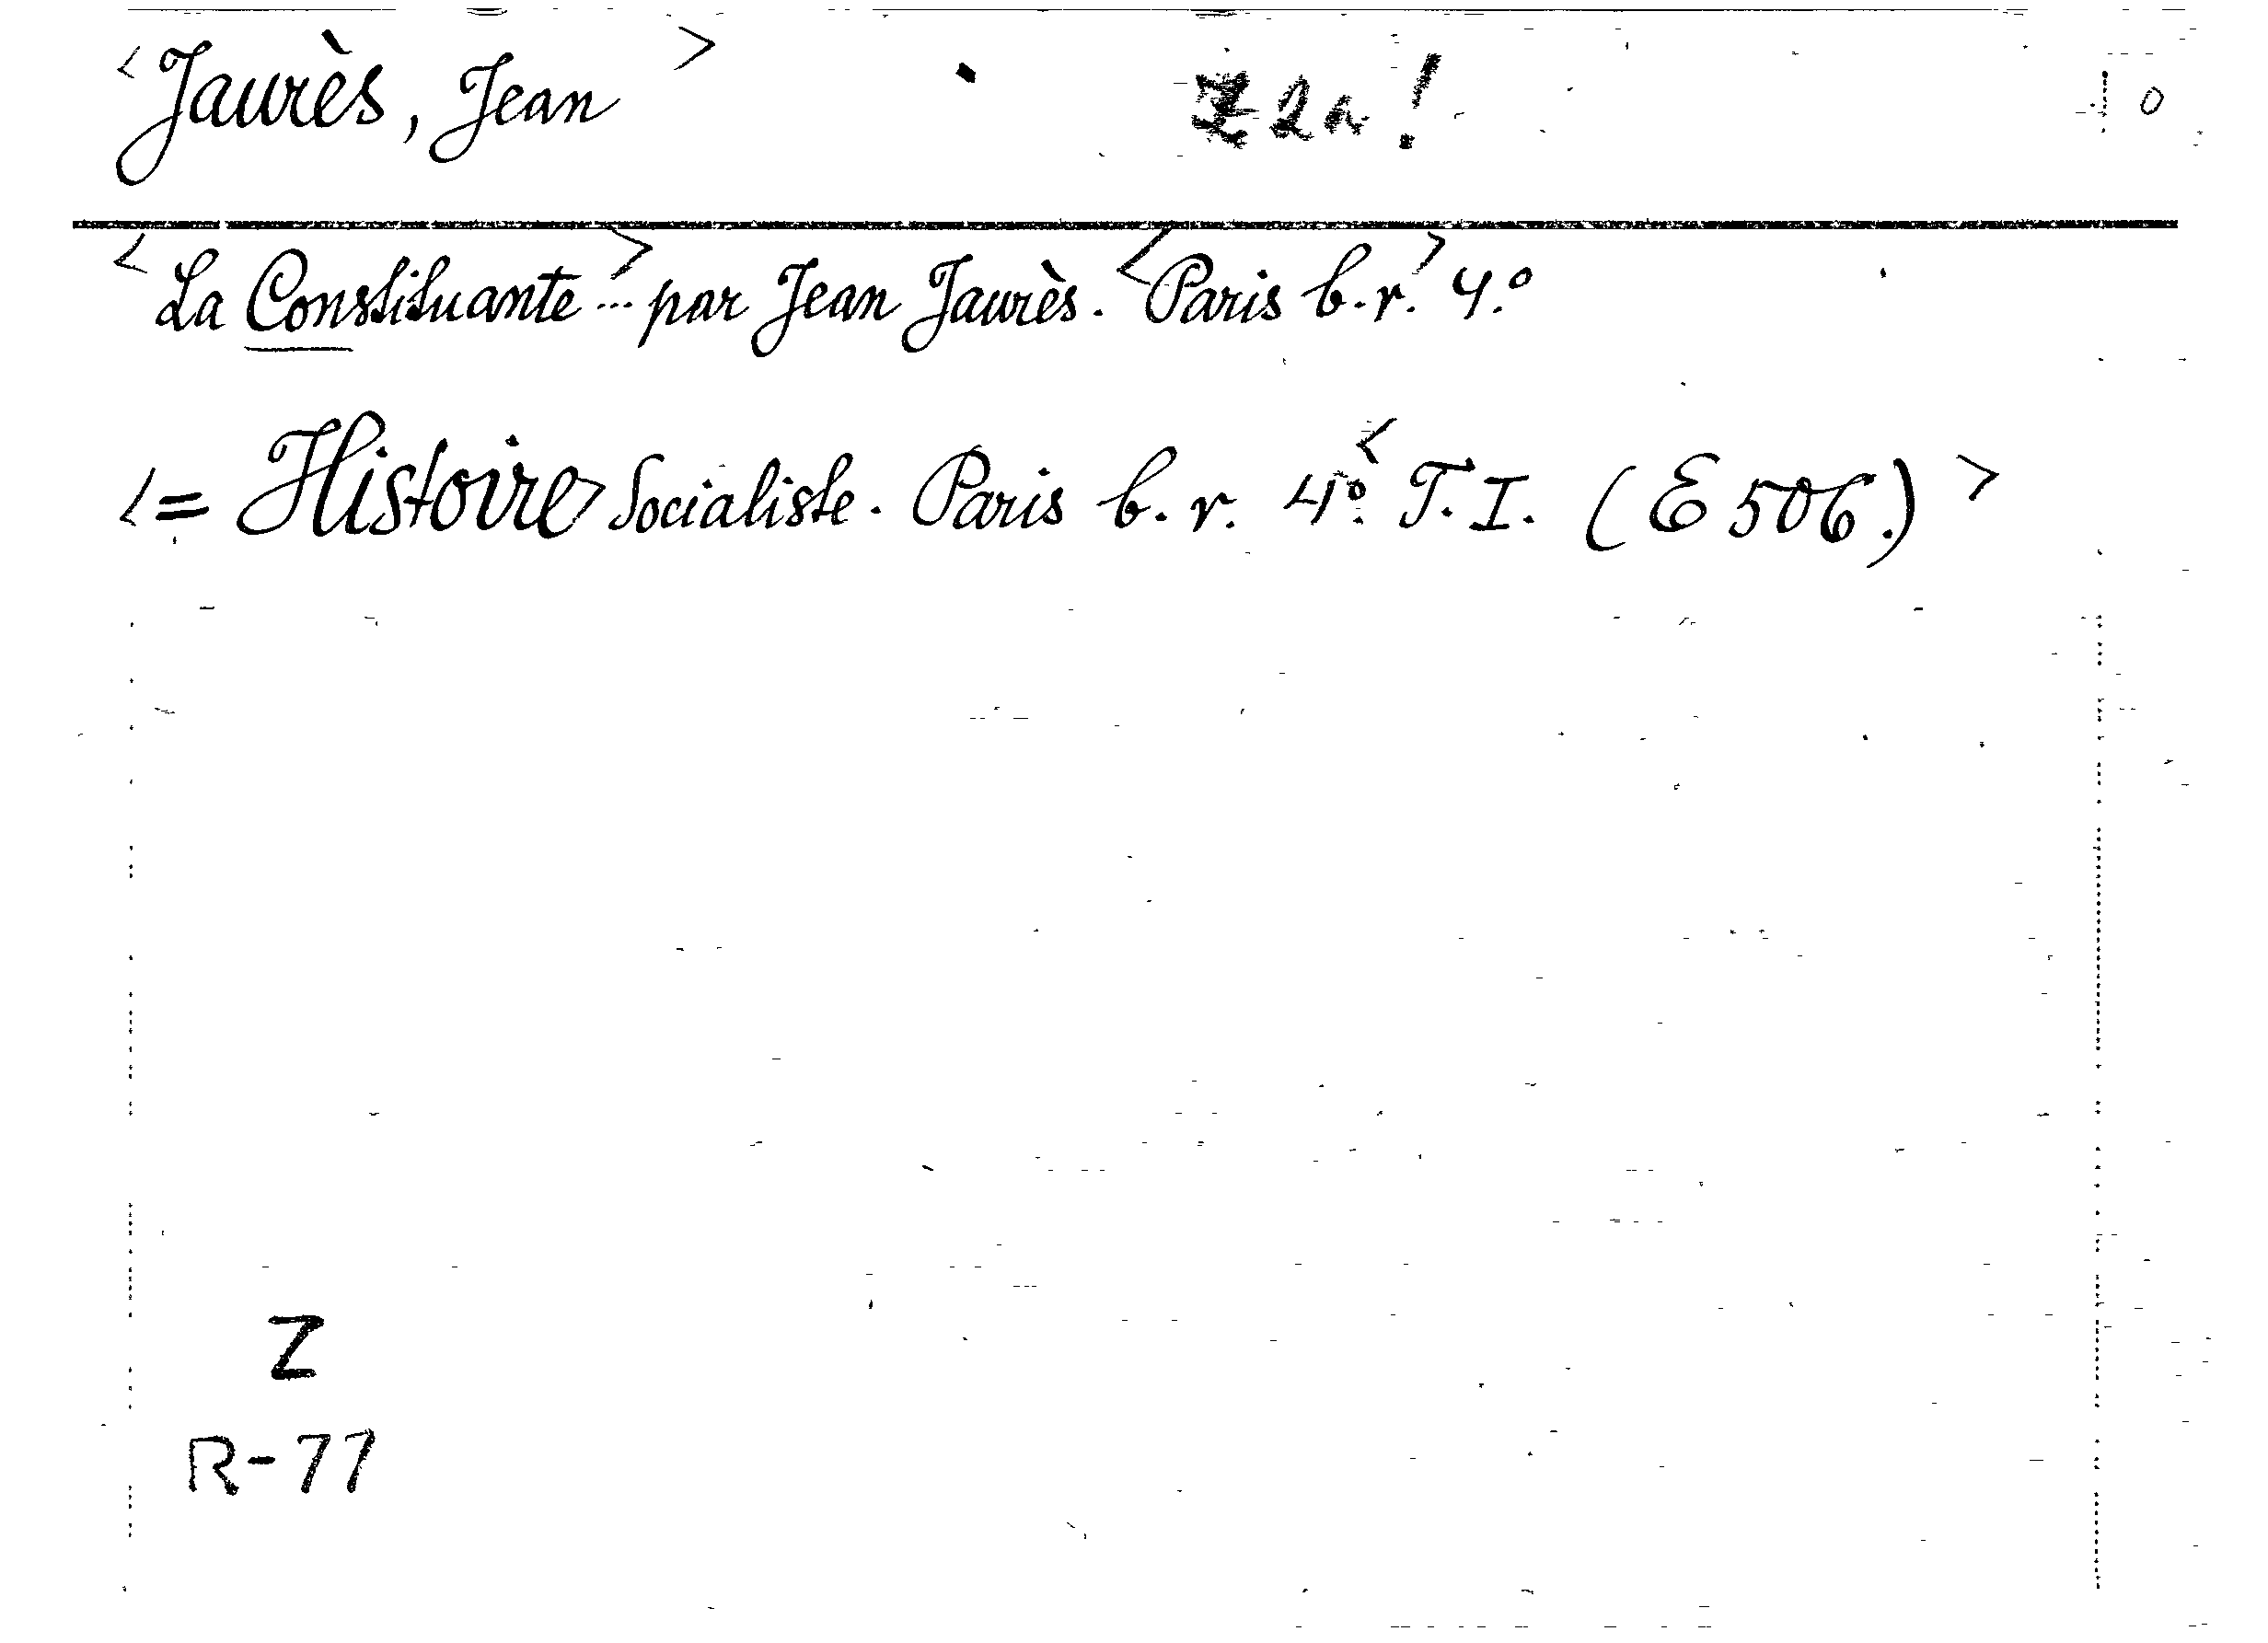 <Jaurès, Jean> Z 2a! 10
<La Constituante> ... par Jean Jaurès. <Paris b.r.> 4.º
<= Histoire Socialiste. Paris b. r. 4º. <T. I. (E 506.)>
Z
R-77